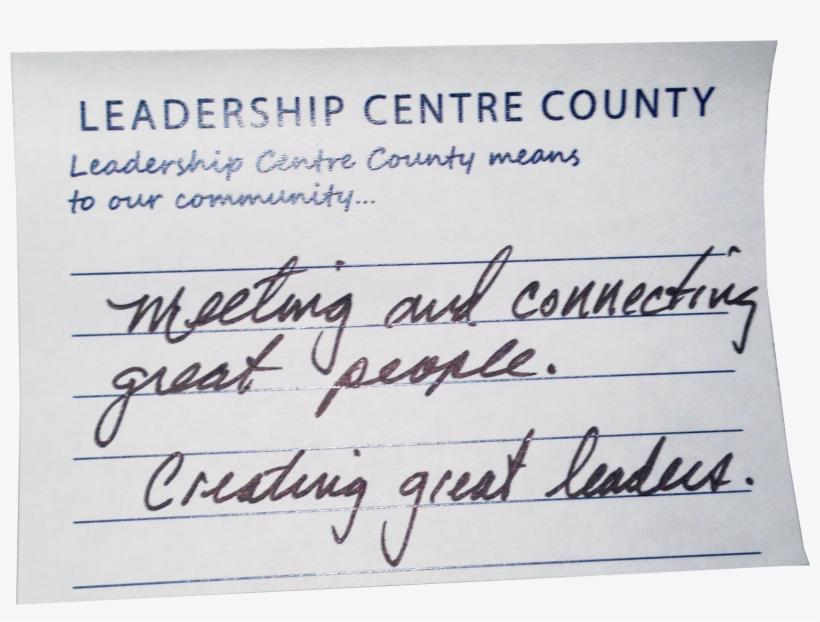 LEADERSHIP CENTRE COUNTY
Leadership Centre County means
to our community...
Meeting and connecting
great people.
Creating great leaders.